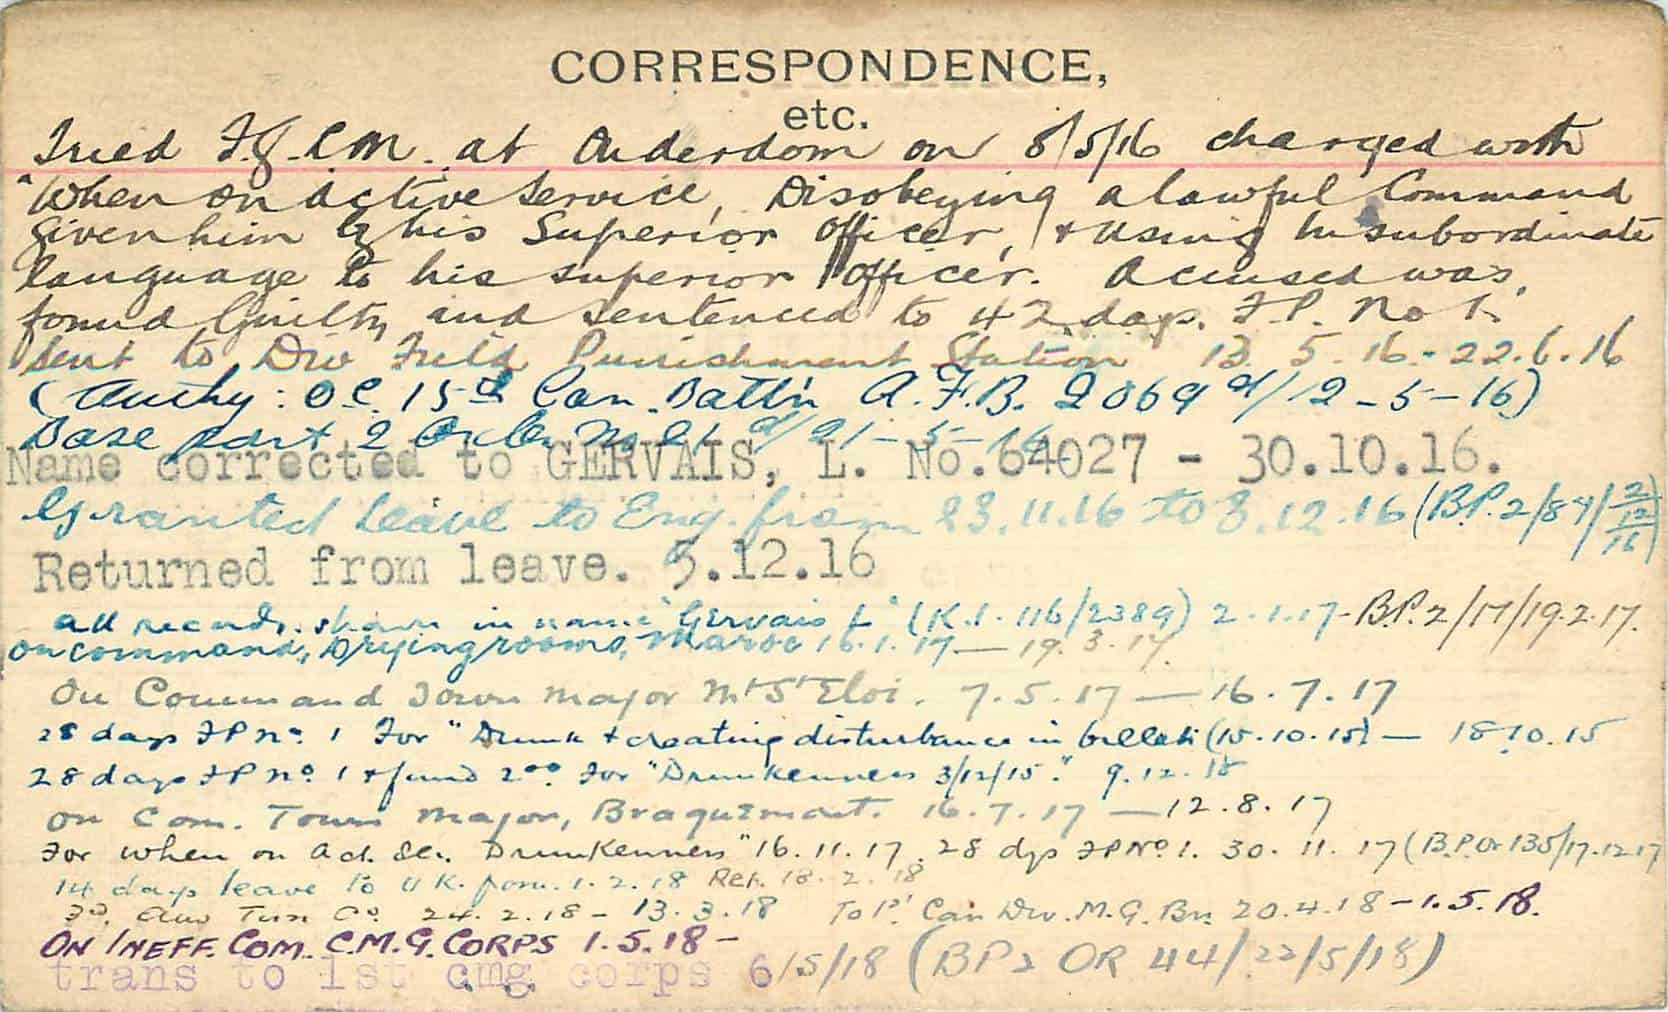 CORRESPONDENCE,
etc.
Tried F.G.C.M. at Ouderdom on 8/5/16 charged with
"When on active Service, Disobeying a lawful Command
given him by his Superior Officer, & using insubordinate
language to his superior officer. Accused was
found Guilty and sentenced to 42 days. F.P. No 1.
Sent to Div Field Punishment Station 13.5.16 - 22.6.16
(Authy: OC. 15th Can. Battn A.F.B. 2069 d/12-5-16)
Base part 2 Order No 21 d/21-5-16
Name corrected to GERVAIS, L. No.64027 - 30.10.16.
Granted leave to Eng. from 23.11.16 to 3.12.16 (B.P.2/84/2/12/16)
Returned from leave. 5.12.16
all records shown in name "Gervais L" (K.1.116/2389) 2.1.17 - B.P.2/17/19.2.17.
on command, Drying rooms, Maroc 16.1.17 — 19.3.17.
On Command Town Major Mt St Eloi. 7.5.17 — 16.7.17
28 days FP No. 1 For "Drunk & creating disturbance in billets (15.10.15) — 18.10.15
28 days FP No. 1 & fined 2.00 For "Drunkenness 3/12/15." 9.12.15
On Com. Town Major, Braquemont. 16.7.17 — 12.8.17
For when on Act. Ser. Drunkenness" 16.11.17. 28 dys FP No. 1. 30.11.17 (B.P. Or 135/17.12.17
14 days leave to U K. from. 1.2.18 Ret. 18.2.18
24.2.18 - 13.3.18 To 1st Can Div. M.G. Bn 20.4.18 - 1.5.18.
ON INEFF. COM. C.M.G. CORPS 1.5.18 -
trans to 1st cmg corps 6/5/18 (BP2 OR 44/22/5/18)